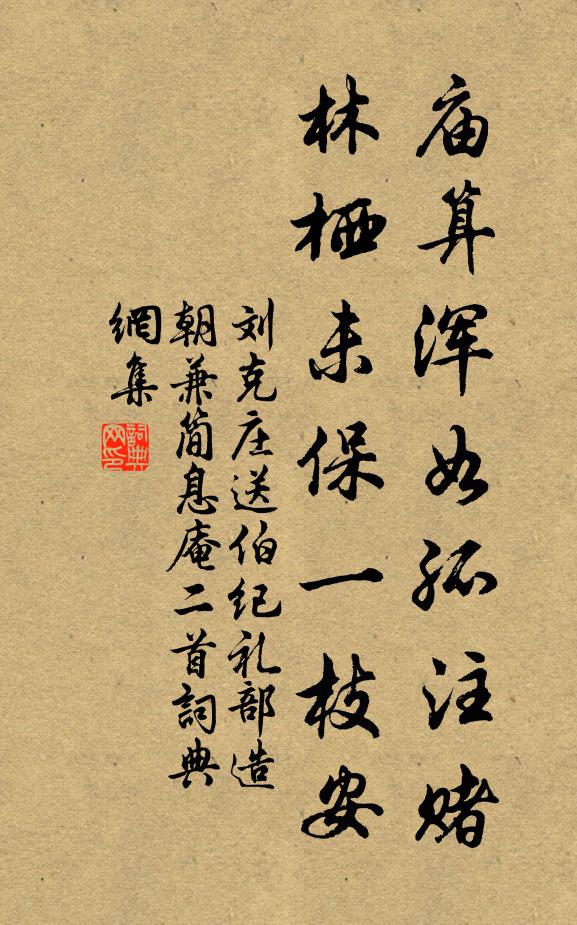 庙算浑如孤注赌
林栖未保一枝安
刘克庄送伯纪礼部造
朝兼简息庵二首詞典
網集
詞典
网印